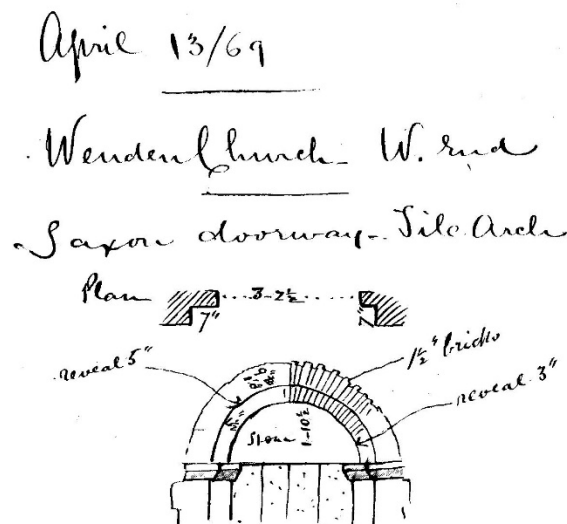 April 13/69
Wenden Church W. End
Saxon doorway - Tile Arch
Plan
3-2½
7"
7"
1½" bricks
reveal 5"
reveal 3"
Stone
1-10½